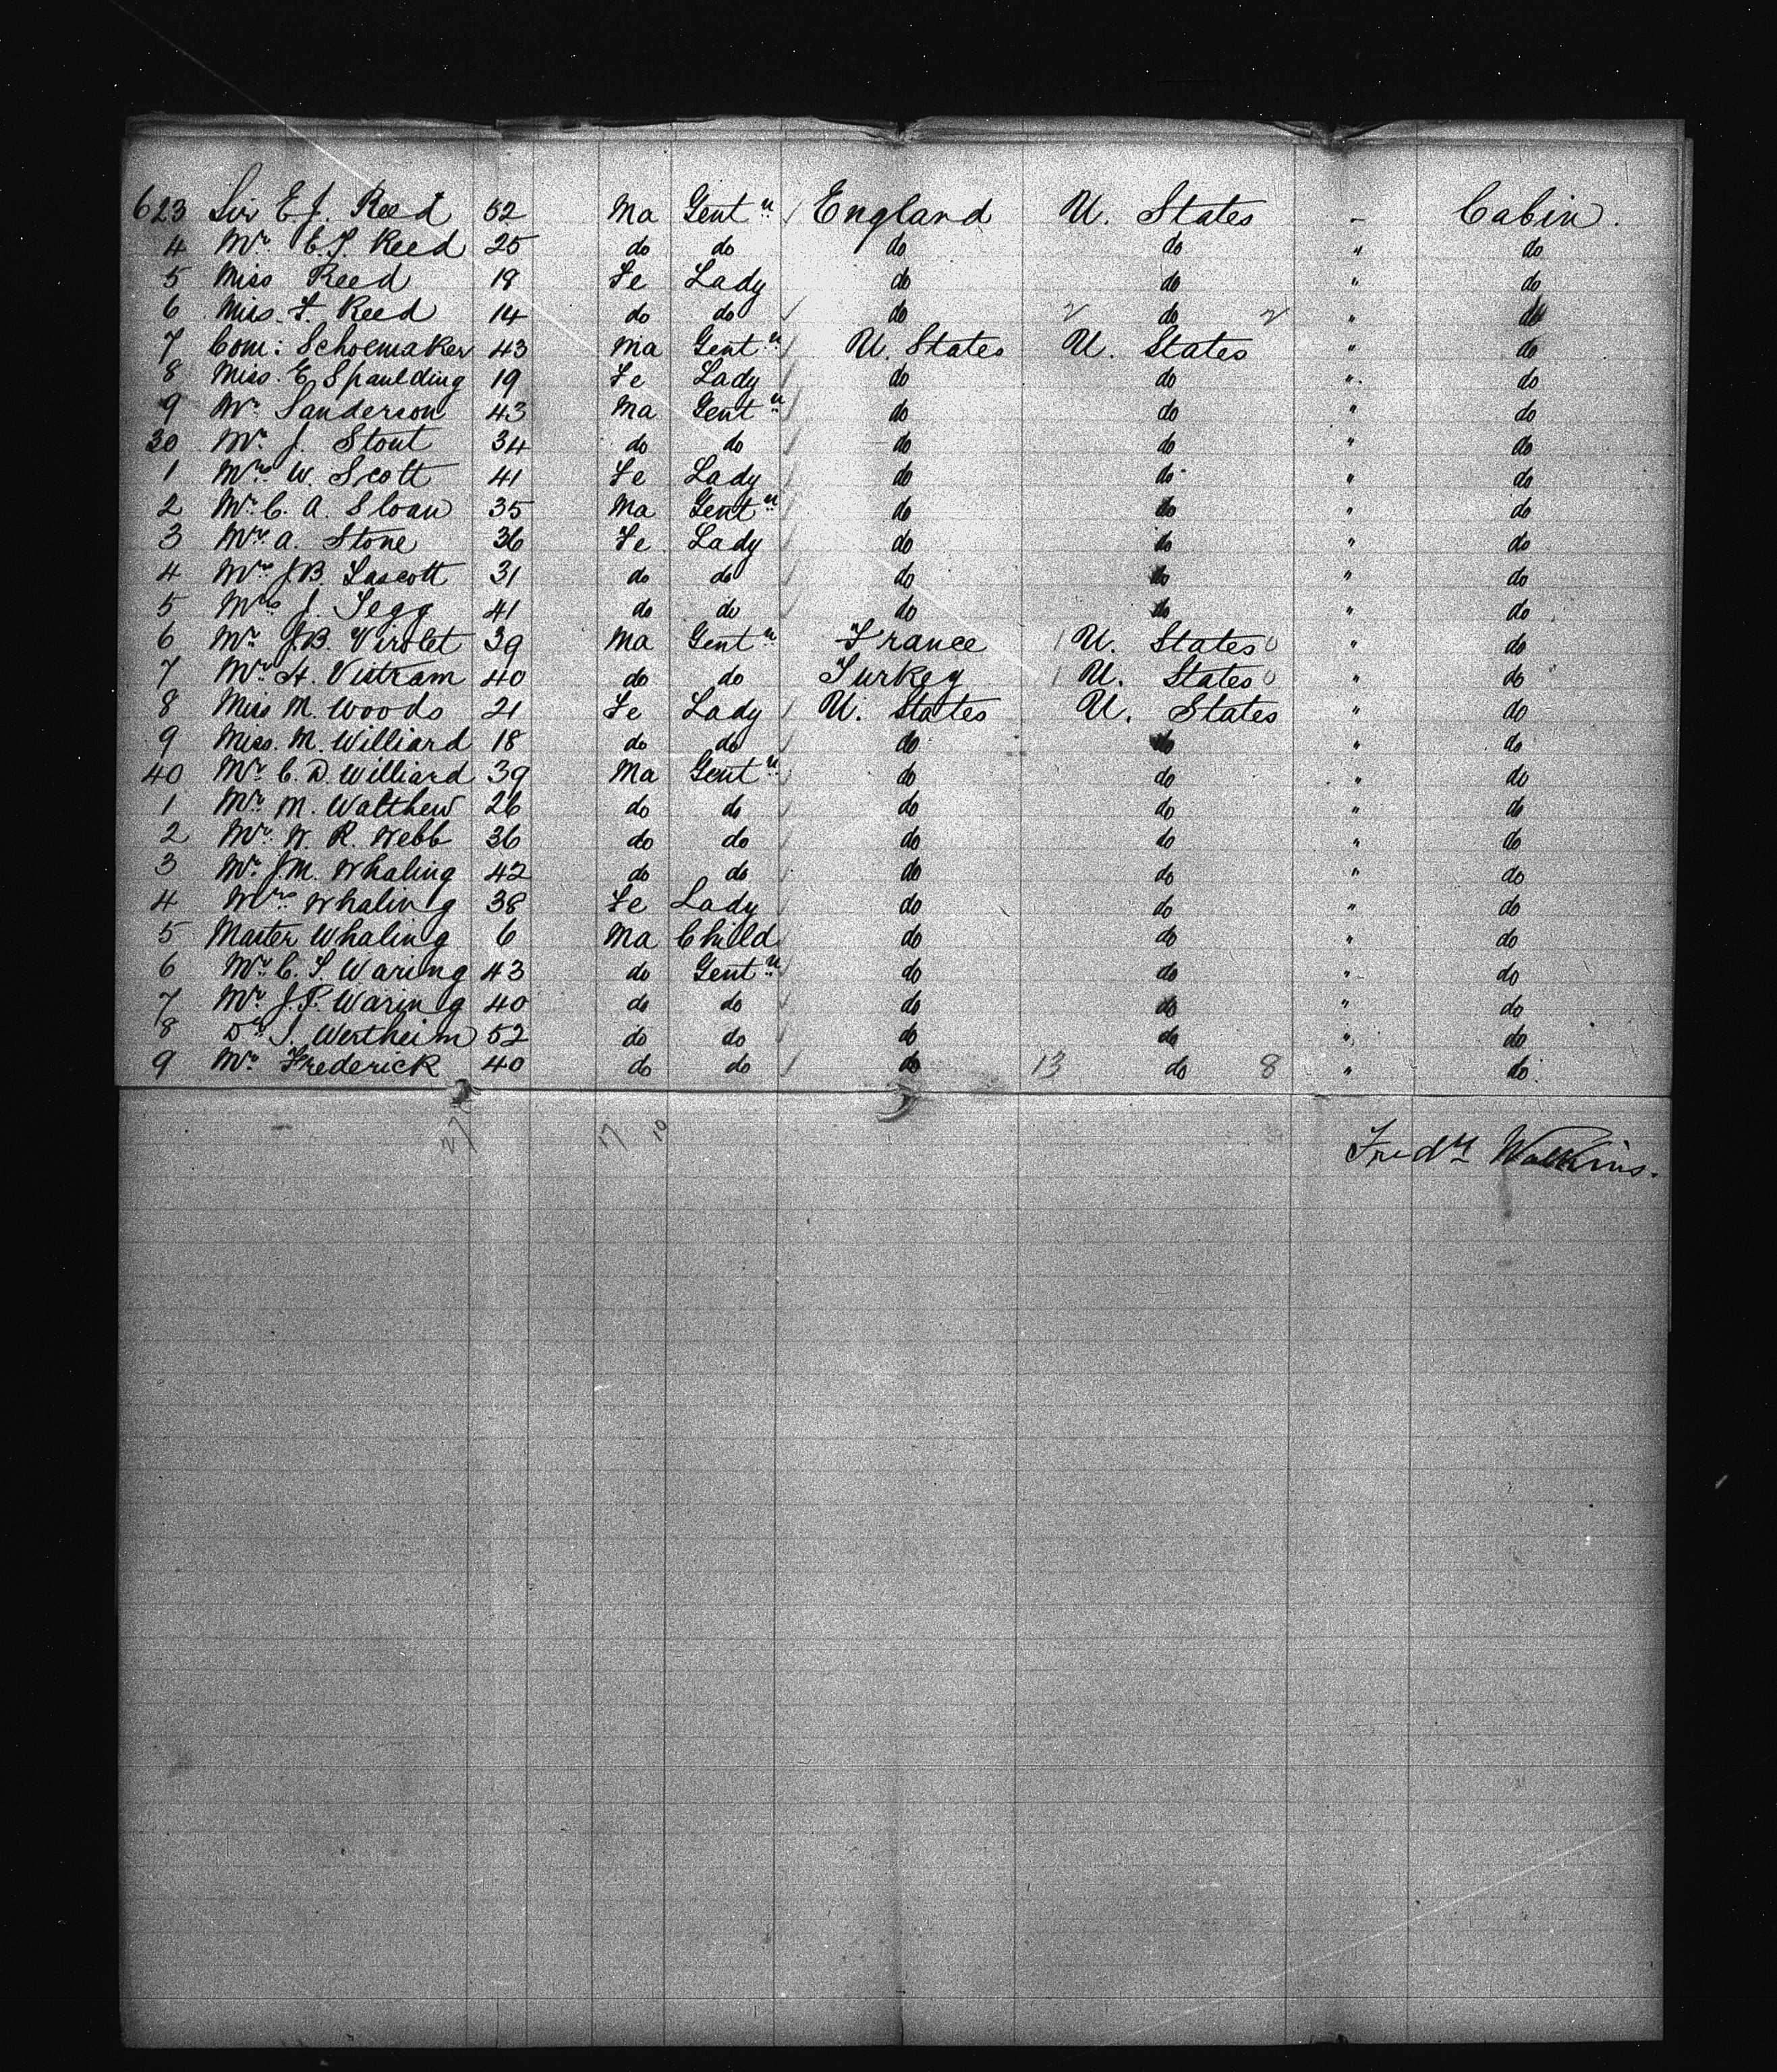 623 Sir E J. Reed 52 Ma Gent n England U. States - Cabin.
4 Mr. E. T. Reed 25 do do do do " do
5 Miss Reed 18 Fe Lady do do " do
6 Miss. F. Reed 14 do do do 2 do 2 " do
7 Com: Schoemaker 43 Ma Gent n U. States U. States " do
8 Miss. E Spaulding 19 Fe Lady do do " do
9 Mr. Sanderson 43 Ma Gent n do do " do
30 Mr. J. Stout 34 do do do do " do
1 Mrs W. Scott 41 Fe Lady do do " do
2 Mr. C. A. Sloan 35 Ma Gent n do do " do
3 Mrs A. Stone 36 Fe Lady do do " do
4 Mrs J.B. Tascott 31 do do do do " do
5 Mrs J. Tegg 41 do do do do " do
6 Mr J.B. Virolet 39 Ma Gent n France 1 U. States 0 " do
7 Mr. H. Vistram 40 do do Turkey 1 U. States 0 " do
8 Miss M. Woods 21 Fe Lady U. States U. States " do
9 Miss. M. Williard 18 do do do do " do
40 Mr. C. D. Williard 39 Ma Gent n do do " do
1 Mr. M. Walthew 26 do do do do " do
2 Mr. W. R. Webb 36 do do do do " do
3 Mr. J.M. Whaling 42 do do do do " do
4 Mrs Whaling 38 Fe Lady do do " do
5 Master Whaling 6 Ma Child do do " do
6 Mr. C. T. Waring 43 do Gent n do do " do
7 Mr. J.P. Waring 40 do do do do " do
8 Dr. J. Wertheim 52 do do do do " do
9 Mr. Frederick 40 do do do 13 do 8 " do
27 17 10
Fredk Watkins.